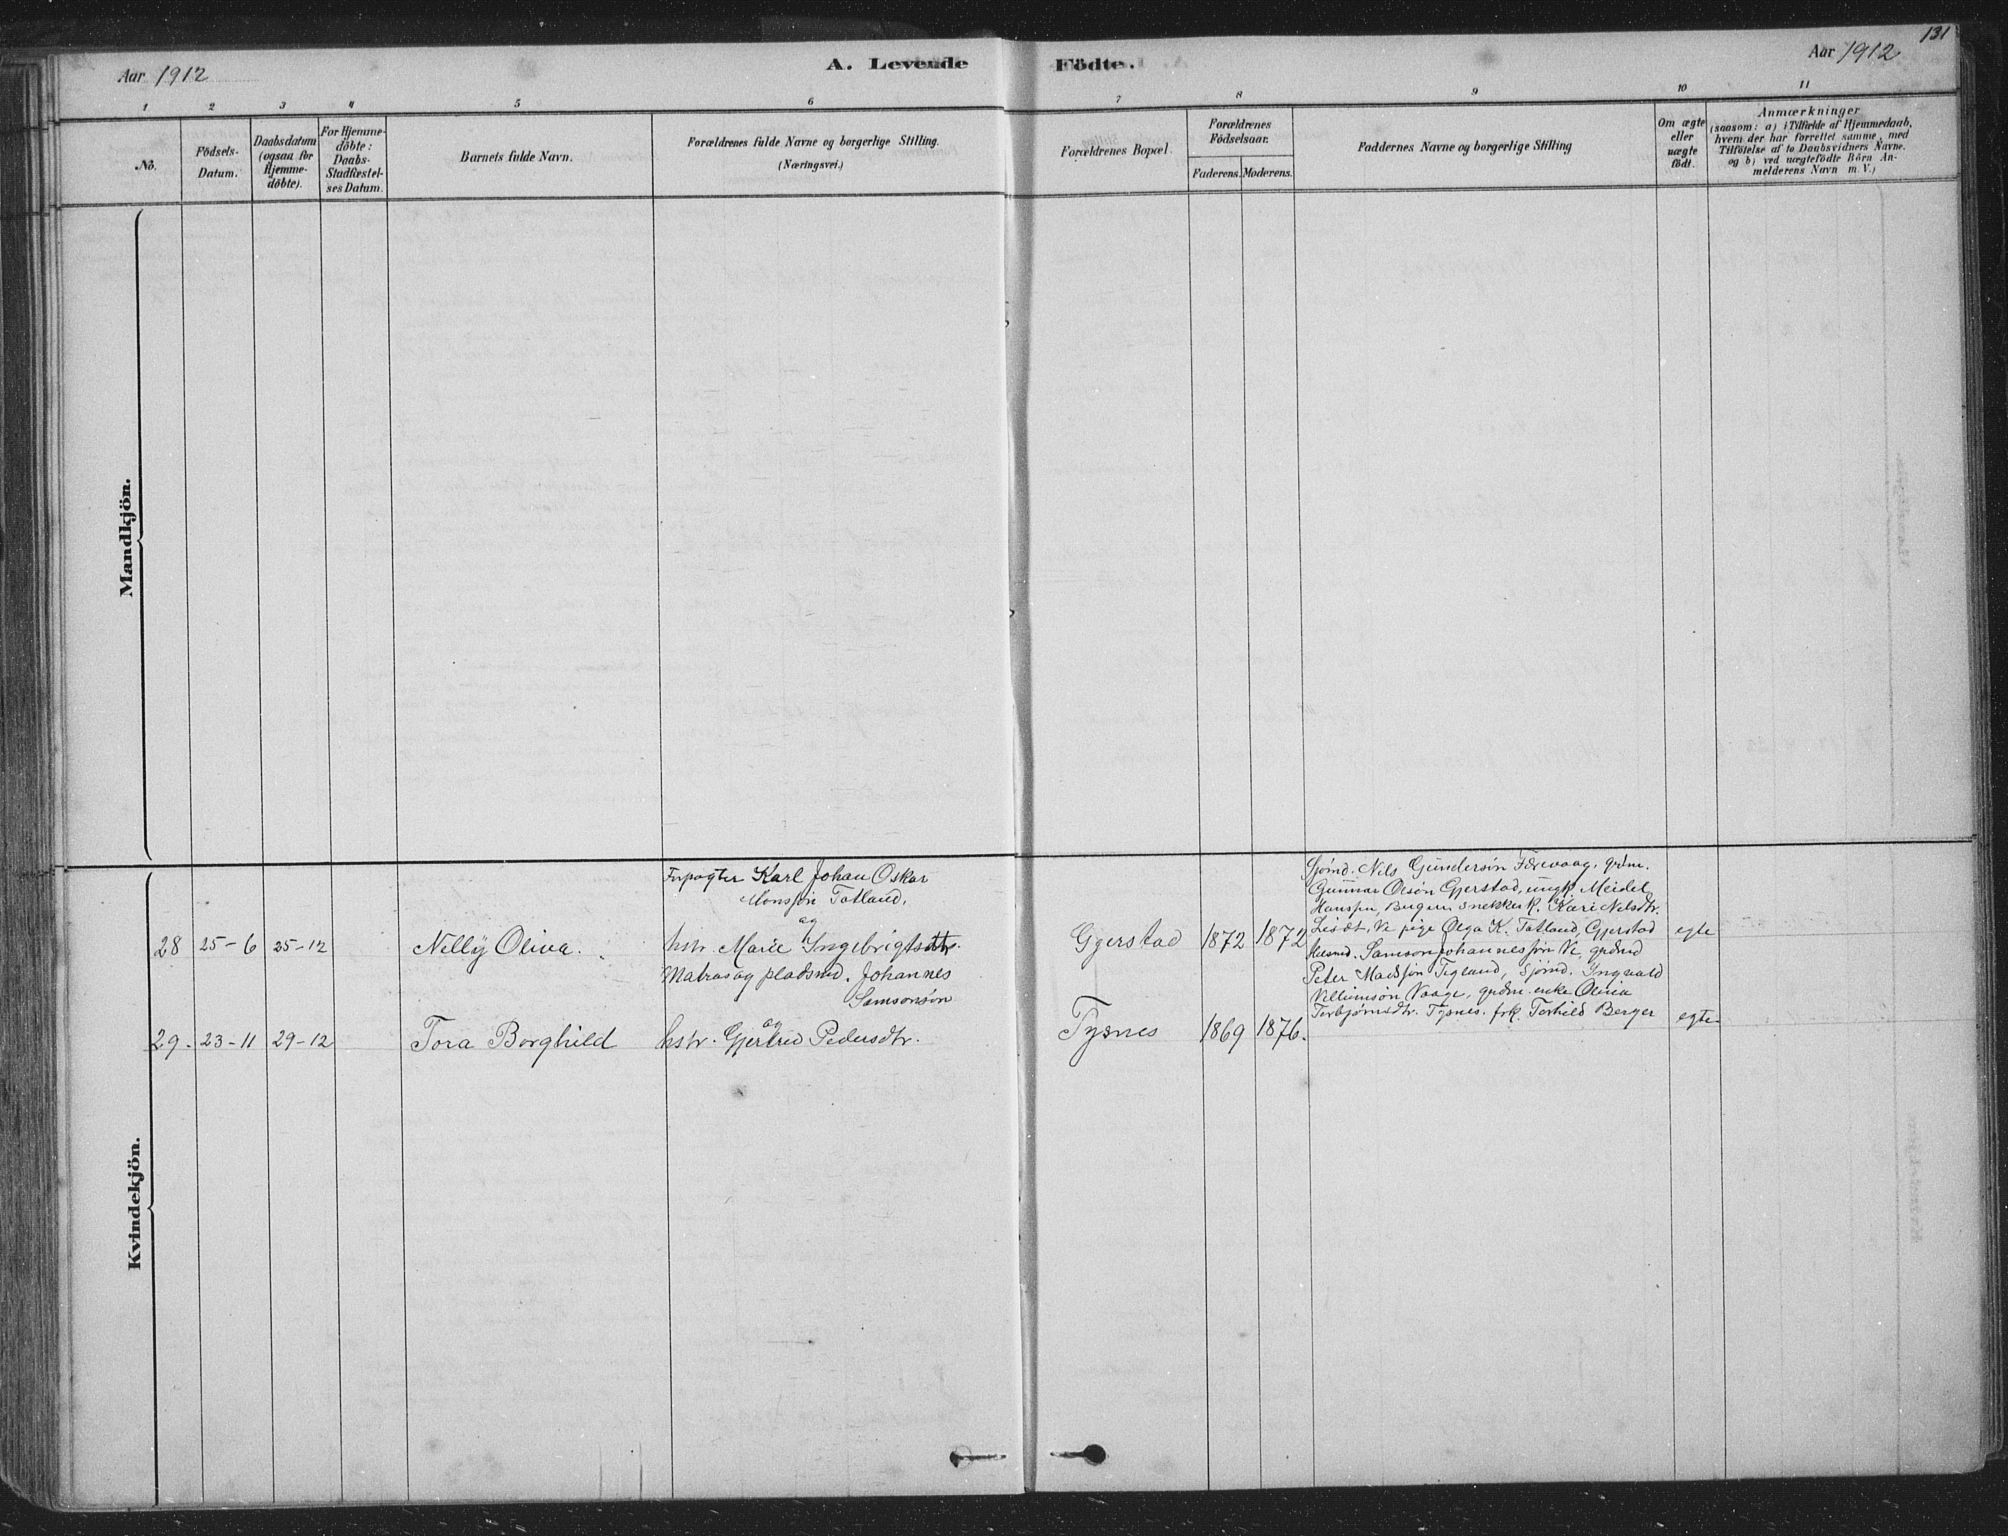 131
Aar 1912
A. Levende Födte.
Aar 1912
1 2 3 4 5 6 7 8 9 10 11
No.
Födsels-Datum.
Daabsdatum (ogsaa for Hjemme-döbte).
For Hjemme-döbte: Daabs-Stadfæstel-ses Datum.
Barnets fulde Navn.
Forældrenes fulde Navne og borgerlige Stilling.
(Næringsvei.)
Forældrenes Bopæl.
Forældrenes Födselsaar.
Faderens. Moderens.
Faddernes Navne og borgerlige Stilling
Om ægte eller uægte födt.
Anmærkninger
(saasom: a) i Tilfælde af Hjemmedaab,
hvem der har forrettet samme, med
Tilföielse af to Daabsvidners Navne.
og b) ved uægtefödte Börn An-
melderens Navn m. V.)
Mandkjön.
Kvindekjön.
Forpagter Karl Johan Oskar
Monssøn Tatland,
og
28 25-6 25-12 Nelly Oliva. hstr. Marie Ingebrigtsdtr. Gjerstad 1872 1872 egte
Sjømd. Nels Gundersøn Færevaag, grdm.
Gunnar Olsøn Gjerstad, ungk Meidel
Hanssen, Bugen snekker k. Kari Nelsdtr.
Lisdt, Ve pige Olga K. Tatland, Gjerstad
Matros og pladsmd. Johannes
Samsonsøn
og
29. 23-11 29-12 Tora Borghild hstr. Gjertrud Pedersdtr. Tysnes 1869 1876. egte
Husmd. Samson Johannessøn Ve, grdmd
Peter Madssøn Tegland, sjømd. Ingvald
Villumsøn Vaage, grdm. enke Olivia
Torbjørnsdtr. Tysnes. frk. Torhild Berger